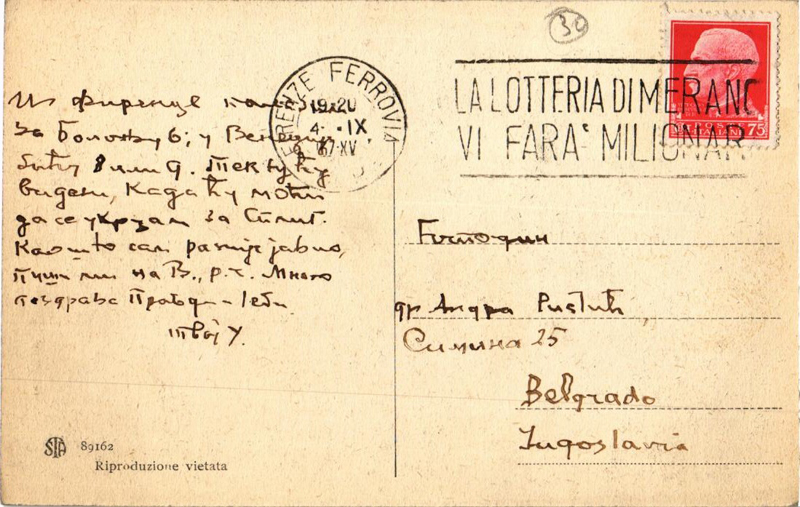 30
FIRENZE FERROVIA
19-20
4.-IX
37-XV
LA LOTTERIA DI MERANO
VI FARA' MILIONAR
75
Из Фиренце
за Болоњу 6; у
бићу 8 или 9. Тек ћу
видети, када ћу моћи
да се укрцам за Сплит.
Као што сам раније јавио,
пиши ми на В., р. х. Много
поздрава теби.
твој У.
Господин
др Андра Ристић
Симина 25
Belgrado
Jugoslavia
STA 89162
Riproduzione vietata